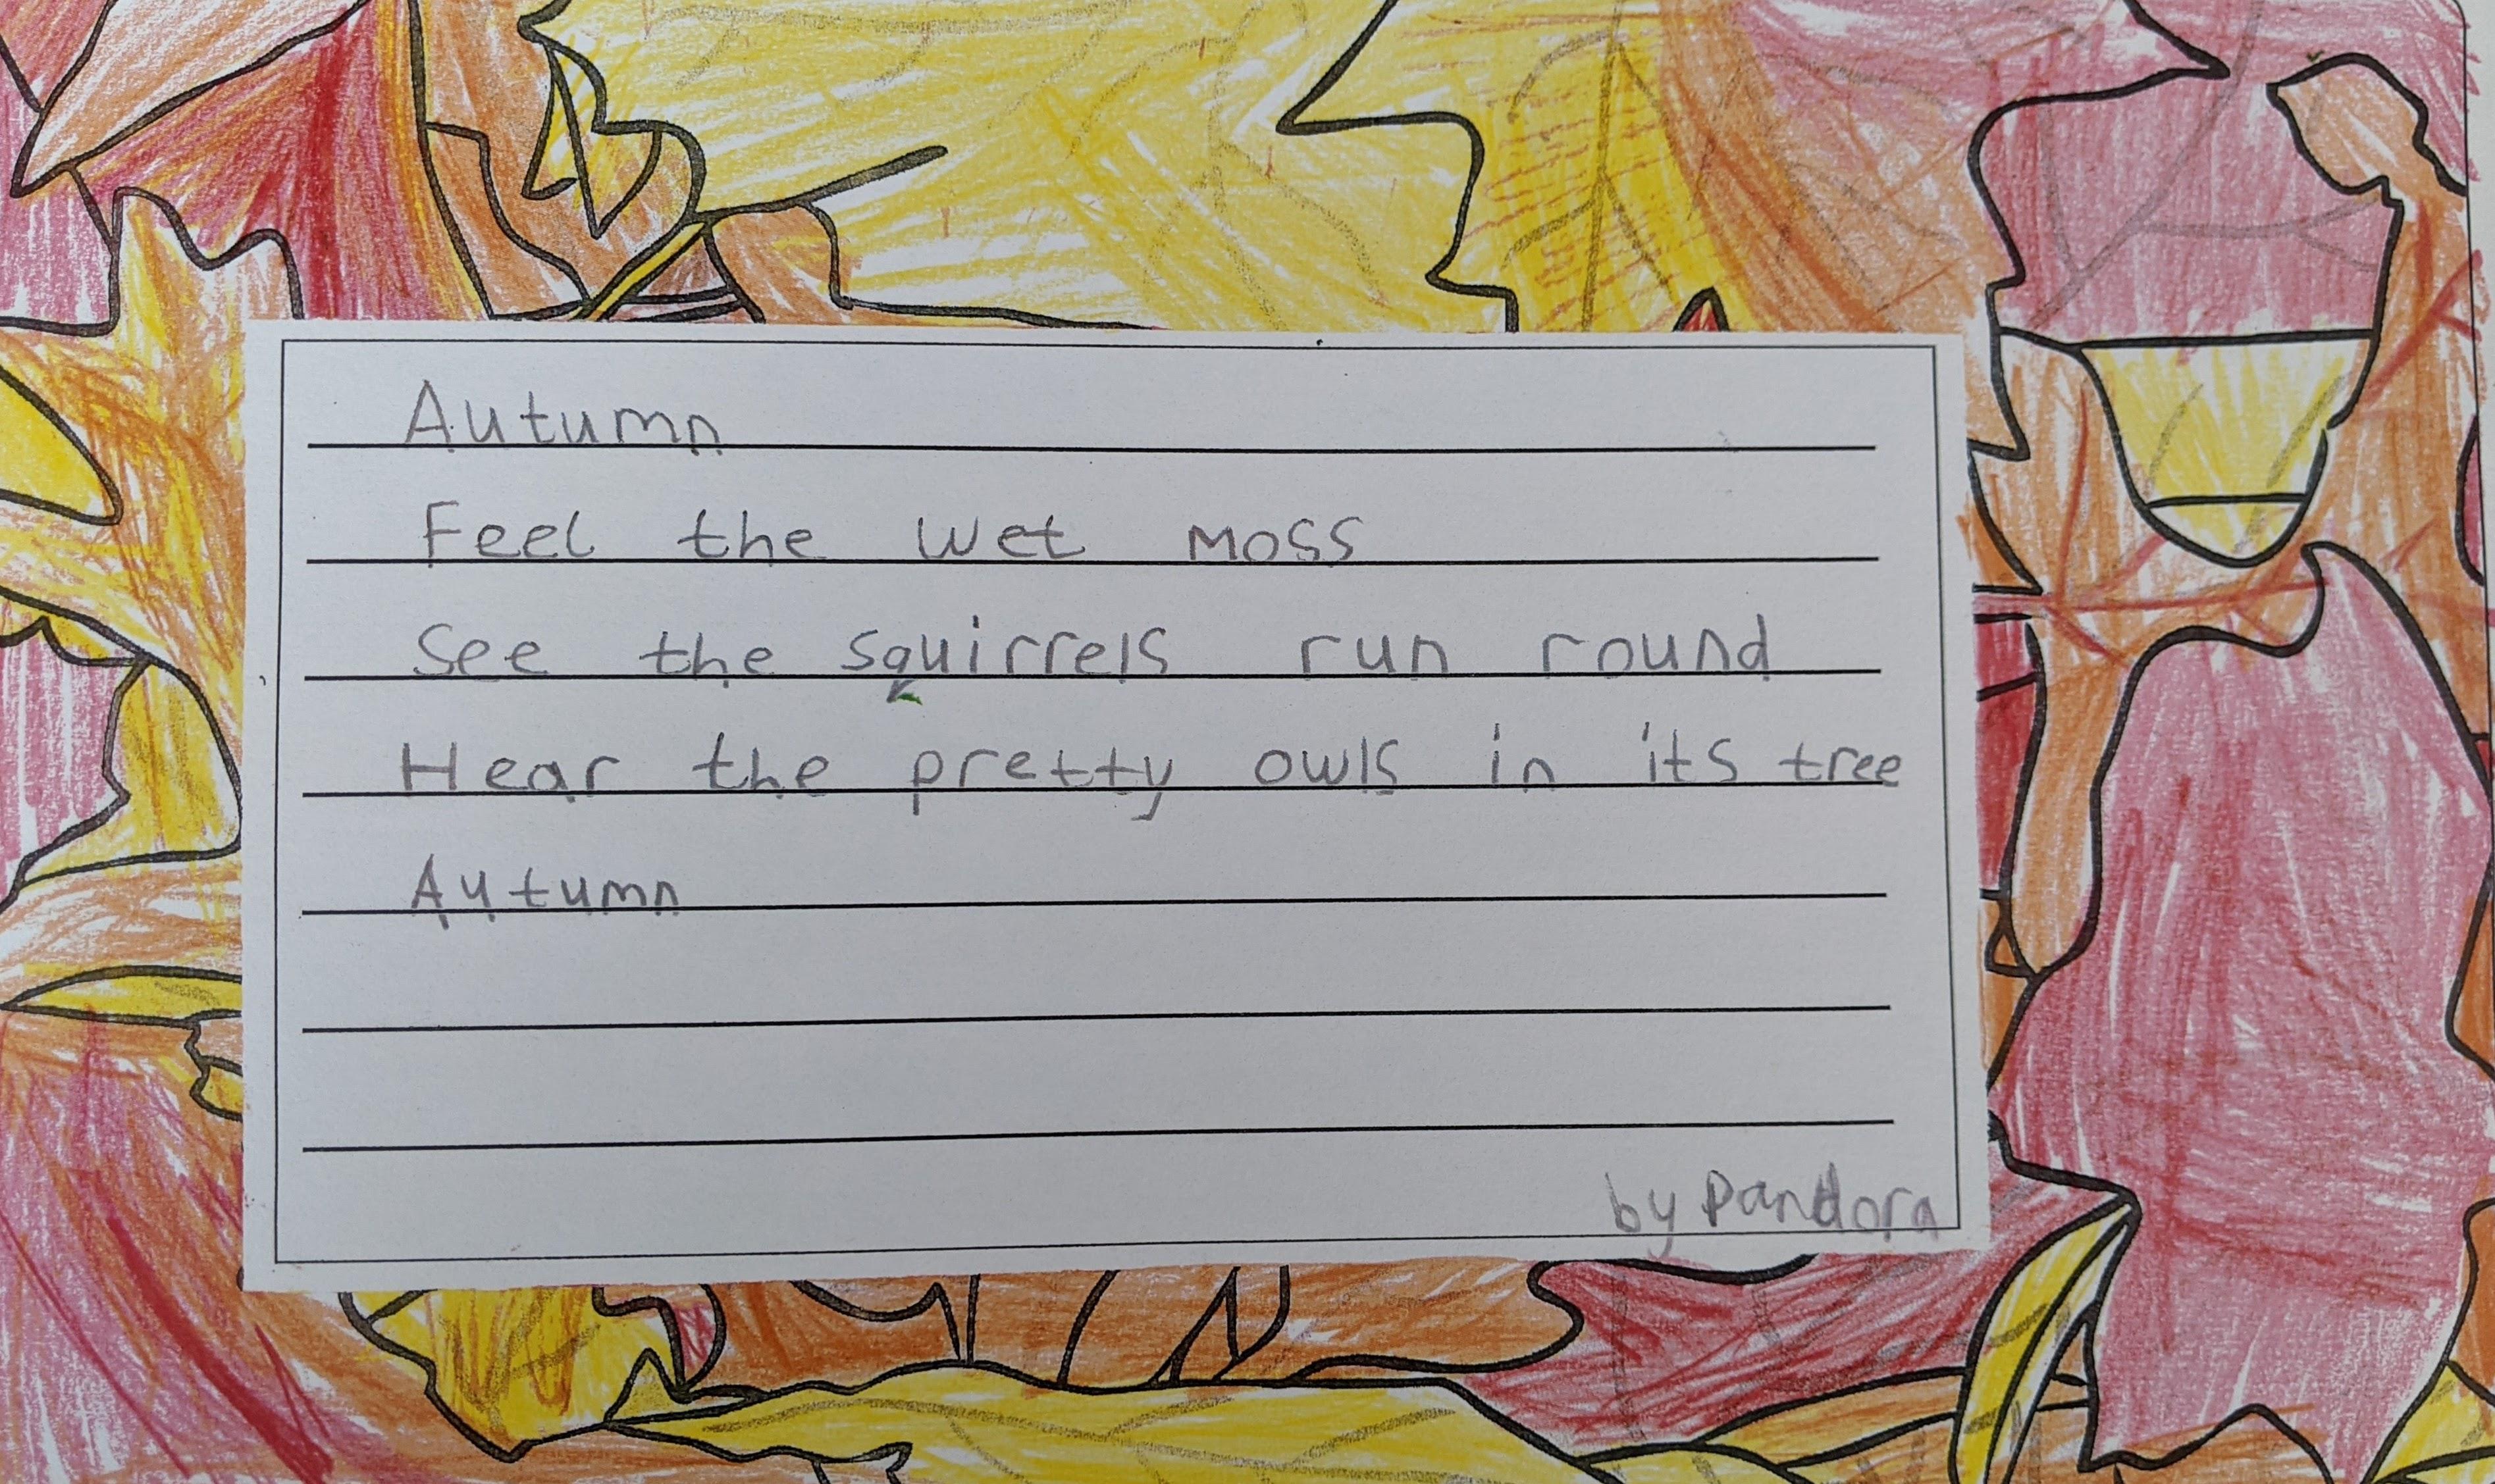 Autumn
Feel the wet moss
See the squirrels run round
Hear the pretty owls in its tree
Autumn
by Pandora